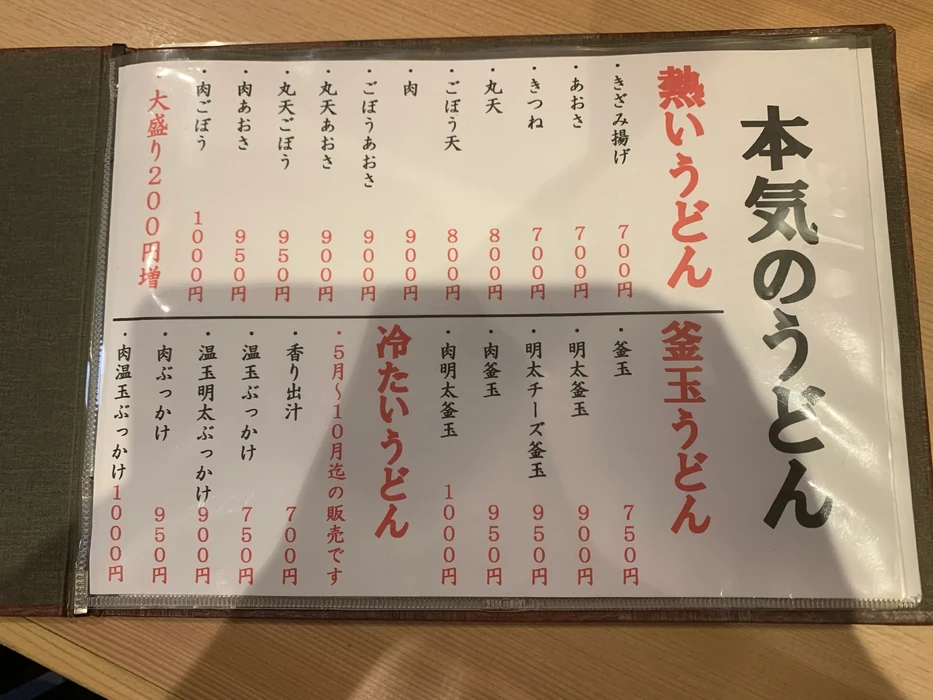 本気のうどん
熱いうどん
・きざみ揚げ 700円
・あおさ 700円
・きつね 700円
・丸天 800円
・ごぼう天 800円
・肉 900円
・ごぼうあおさ 900円
・丸天あおさ 900円
・丸天ごぼう 950円
・肉あおさ 950円
・肉ごぼう 1000円
・大盛り200円増
釜玉うどん
・釜玉 750円
・明太釜玉 900円
・明太チーズ釜玉 950円
・肉釜玉 950円
・肉明太釜玉 1000円
冷たいうどん
・5月～10月迄の販売です
・香り出汁 700円
・温玉ぶっかけ 750円
・温玉明太ぶっかけ 900円
・肉ぶっかけ 950円
・肉温玉ぶっかけ 1000円